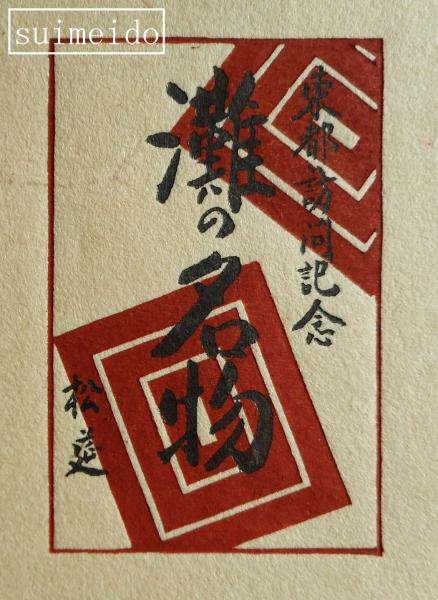 suimeido
東都訪問記念
灘の名物